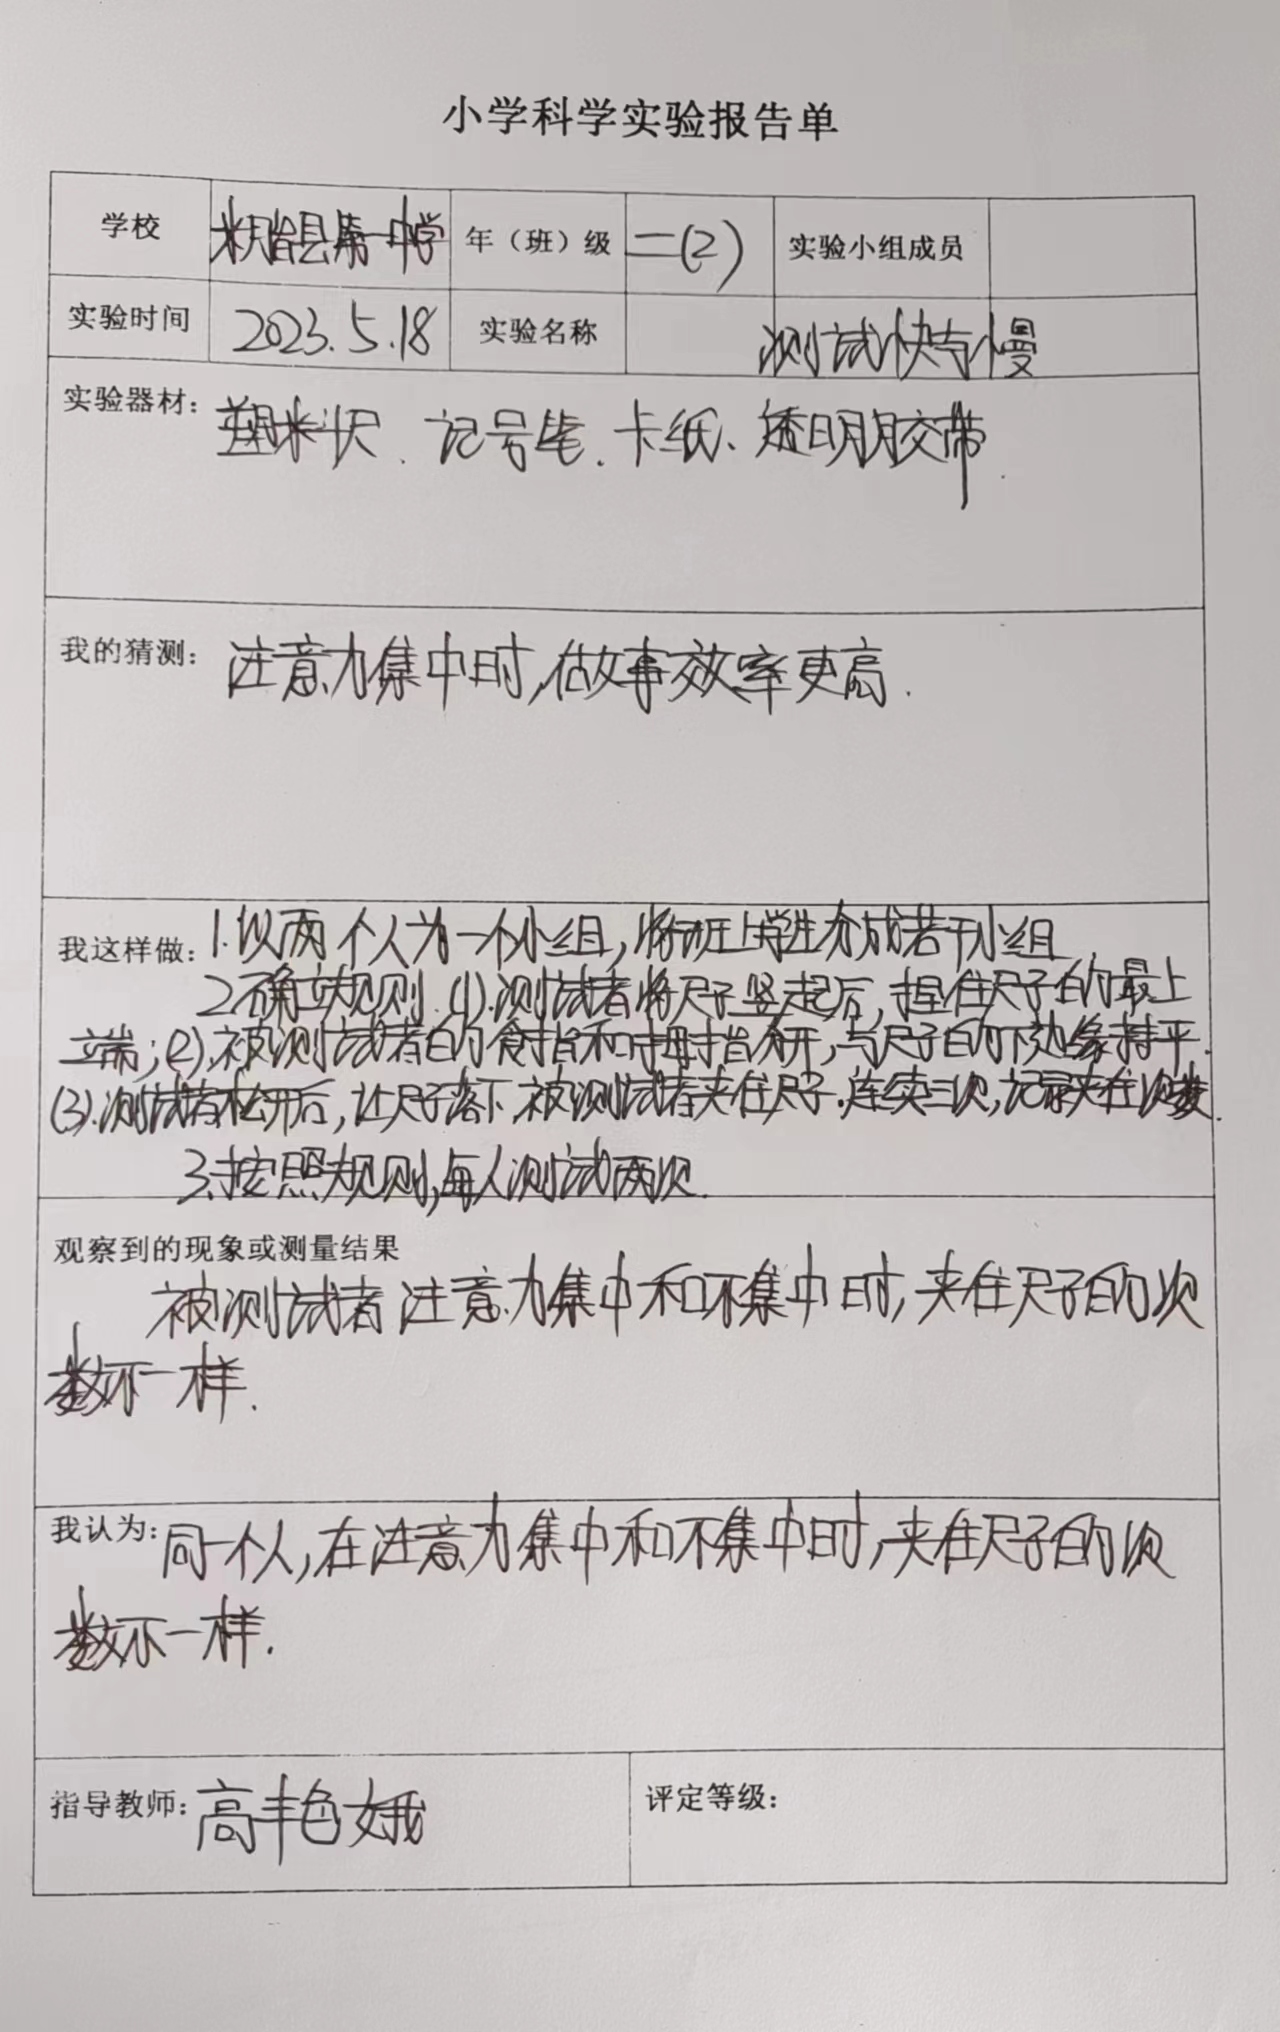 小学科学实验报告单
学校 米脂县第一中学 年（班）级 二(2) 实验小组成员
实验时间 2023.5.18 实验名称 测试快与慢
实验器材： 塑料尺、记号笔、卡纸、透明胶带
我的猜测： 注意力集中时,做事效率更高.
我这样做： 1.以两个人为一个小组,将班上学生分成若干小组
2.确立规则.(1).测试者将尺子竖起后,捏住尺子的最上
端;(2).被测试者的食指和拇指分开,与尺子的下边缘持平.
(3).测试者松开后,让尺子落下,被测试者夹住尺子.连续三次,记录夹住次数.
3.按照规则,每人测试两次.
观察到的现象或测量结果
被测试者注意力集中和不集中时,夹住尺子的次
数不一样.
我认为： 同一个人,在注意力集中和不集中时,夹住尺子的次
数不一样.
指导教师： 高艳娥 评定等级：